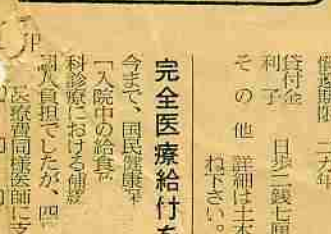 償還期限　二五年
貸付金
利子　　日歩二銭七厘
その他　詳細は土木
ね下さい。
完全医療給付を
今まで、国民健康保
「入院中の給食や
科診療における補綴
個人負担でしたが、四
医療費同様医師に支